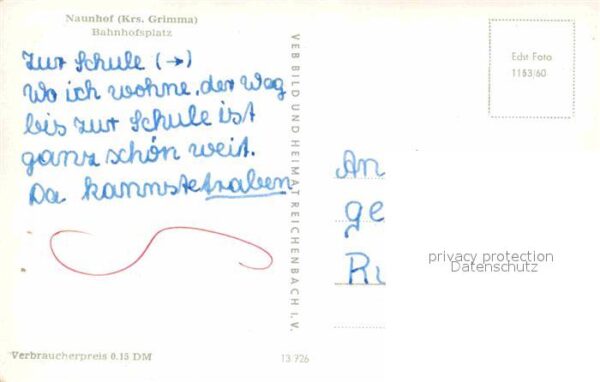 Naunhof (Krs. Grimma)
Bahnhofsplatz
zur Schule (→)
Wo ich wohne, der Wag
bis zur Schule ist
ganz schön weit.
Da kannste traben
Verbraucherpreis 0.15 DM
VEB BILD UND HEIMAT REICHENBACH I. V.
13 726
Echt Foto
1153/60
An
ge
Ru
privacy protection
Datenschutz